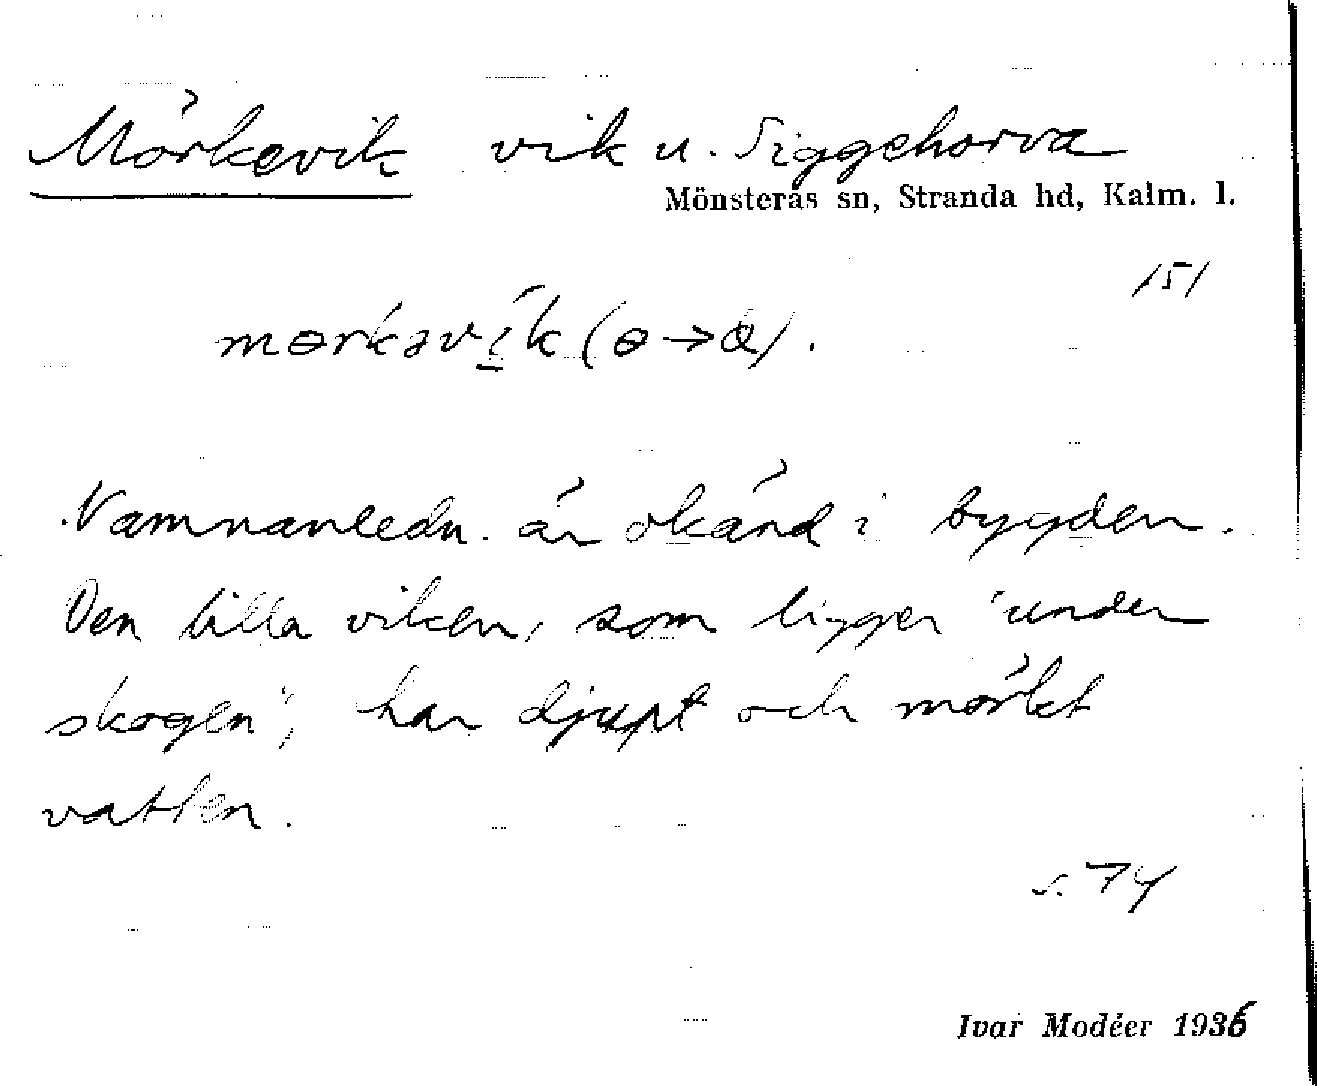 Mörkevik vik u. Siggehorva
Mönsterås sn, Stranda hd, Kalm. l.
151
mɵrkəvík (ɵ→
Namnanledn. är okänd i bygden.
Den lilla viken, som ligger "under
skogen", har djupt och mörkt
vatten.
s. 74
Ivar Modéer 1936